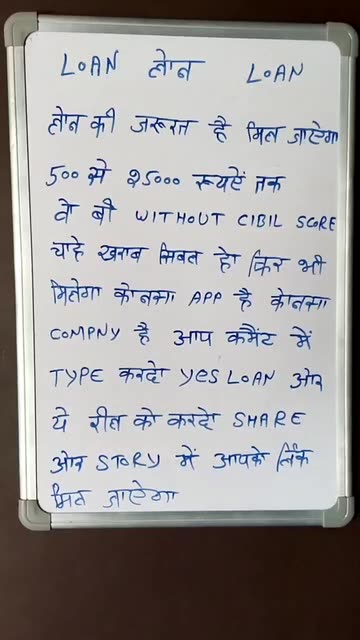 LOAN लोन LOAN
लोन की जरूरत है मिल जाऐगा
500 से 25000 रूपऐं तक
वो बी WITHOUT CIBIL SCORE
चाहे खराब सिबल हो फिर भी
मिलेगा कोनसा APP है कोनसा
COMPNY है आप कमैंट में
TYPE करदो YES LOAN ओर
ये रील को करदो SHARE
ओर STORY में आपके लिंक
मिल जाऐगा